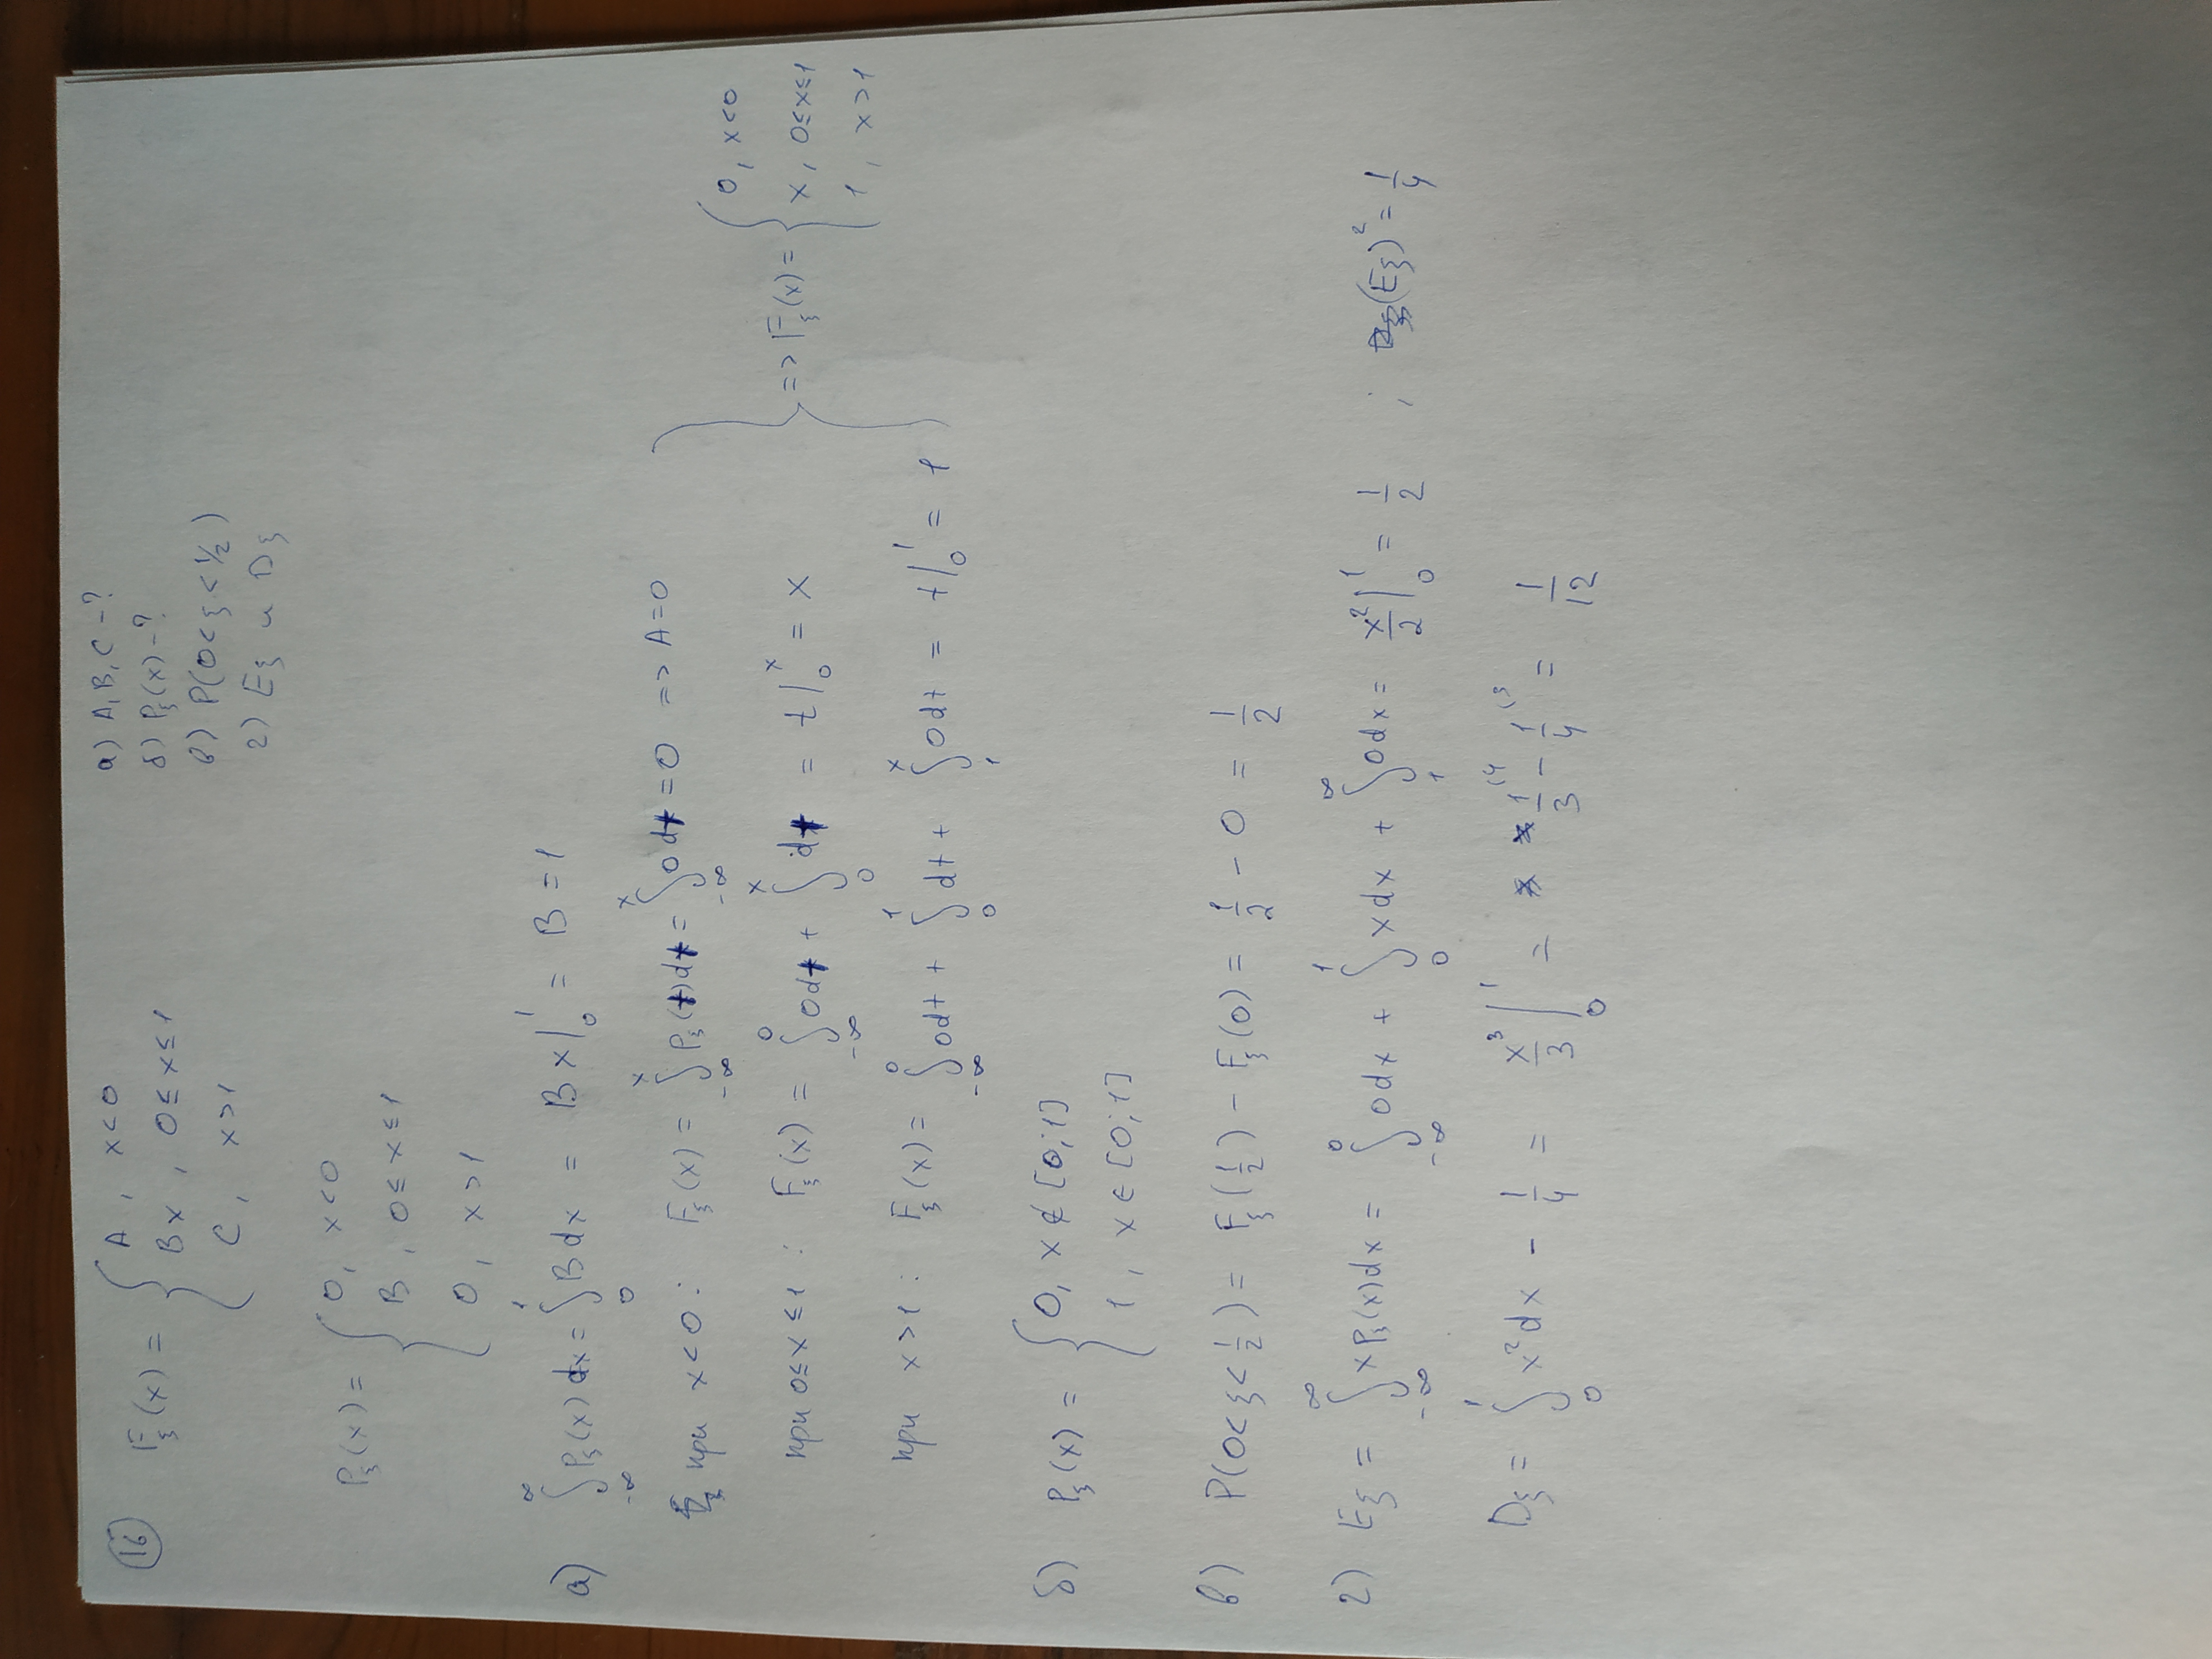 16
F_ξ(x) = { A, x<0
Bx, 0≤x≤1
C, x>1
а) A, B, C -?
б) P_ξ(x) -?
в) P(0<ξ<1/2)
г) Eξ и Dξ
P_ξ(x) = { 0, x<0
B, 0≤x≤1
0, x>1
а) ∫_{-∞}^{∞} P_ξ(x)dx = ∫_0^1 Bdx = Bx|_0^1 = B = 1
при x<0: F_ξ(x) = ∫_{-∞}^x P_ξ(t)dt = ∫_{-∞}^x 0dt = 0 => A=0
при 0≤x≤1: F_ξ(x) = ∫_{-∞}^0 0dt + ∫_0^x dt = t|_0^x = x
при x>1: F_ξ(x) = ∫_{-∞}^0 0dt + ∫_0^1 dt + ∫_1^x 0dt = t|_0^1 = 1
} => F_ξ(x) = { 0, x<0
x, 0≤x≤1
1, x>1
б) P_ξ(x) = { 0, x∉[0;1]
1, x∈[0;1]
в) P(0<ξ<1/2) = F_ξ(1/2) - F_ξ(0) = 1/2 - 0 = 1/2
г) Eξ = ∫_{-∞}^{∞} xP_ξ(x)dx = ∫_{-∞}^0 0dx + ∫_0^1 xdx + ∫_1^∞ 0dx = x²/2|_0^1 = 1/2 ; (Eξ)² = 1/4
Dξ = ∫_0^1 x²dx - 1/4 = x³/3|_0^1 = 1/3^{(4} - 1/4^{(3} = 1/12